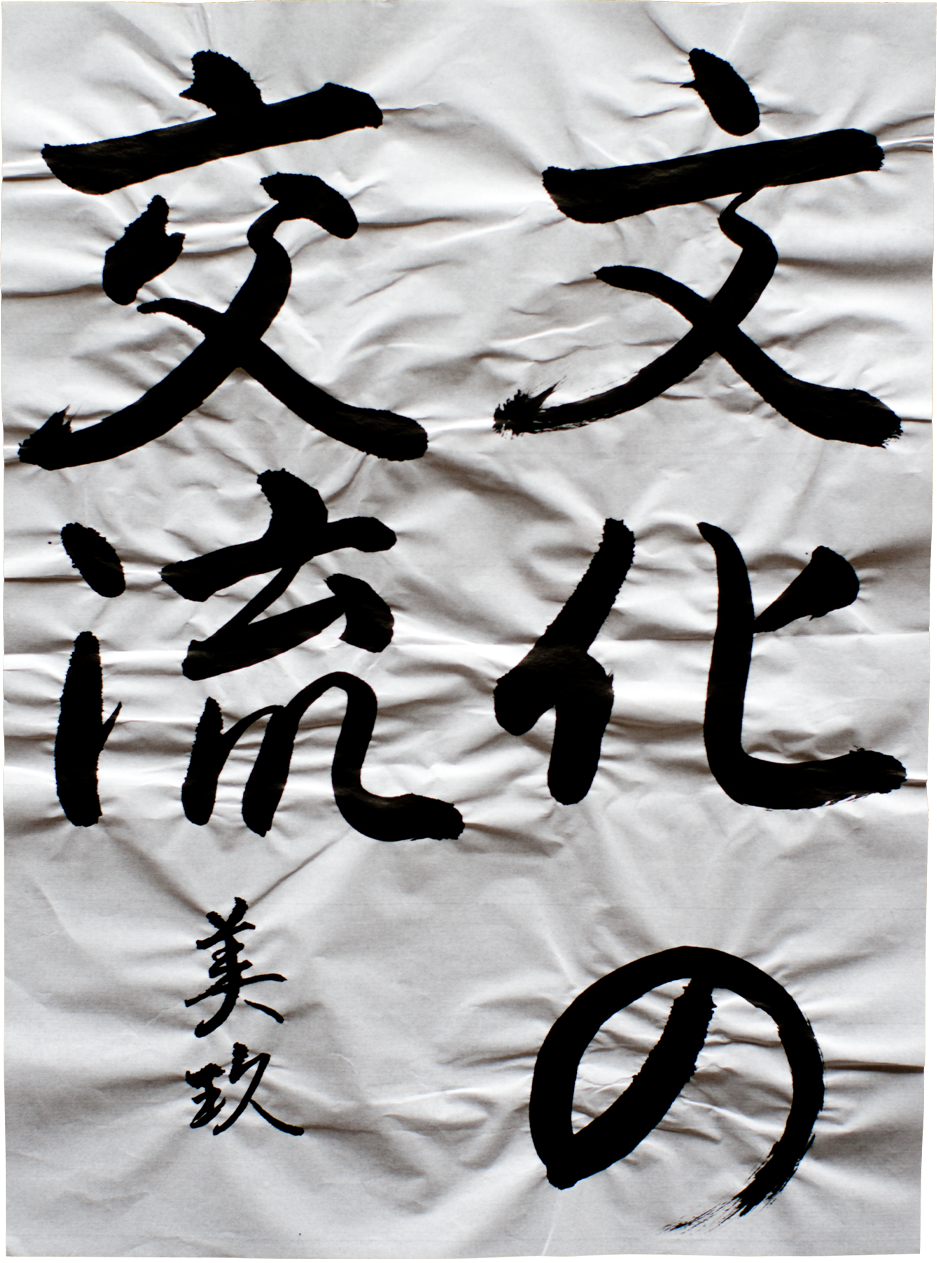 文化の
交流
美玖